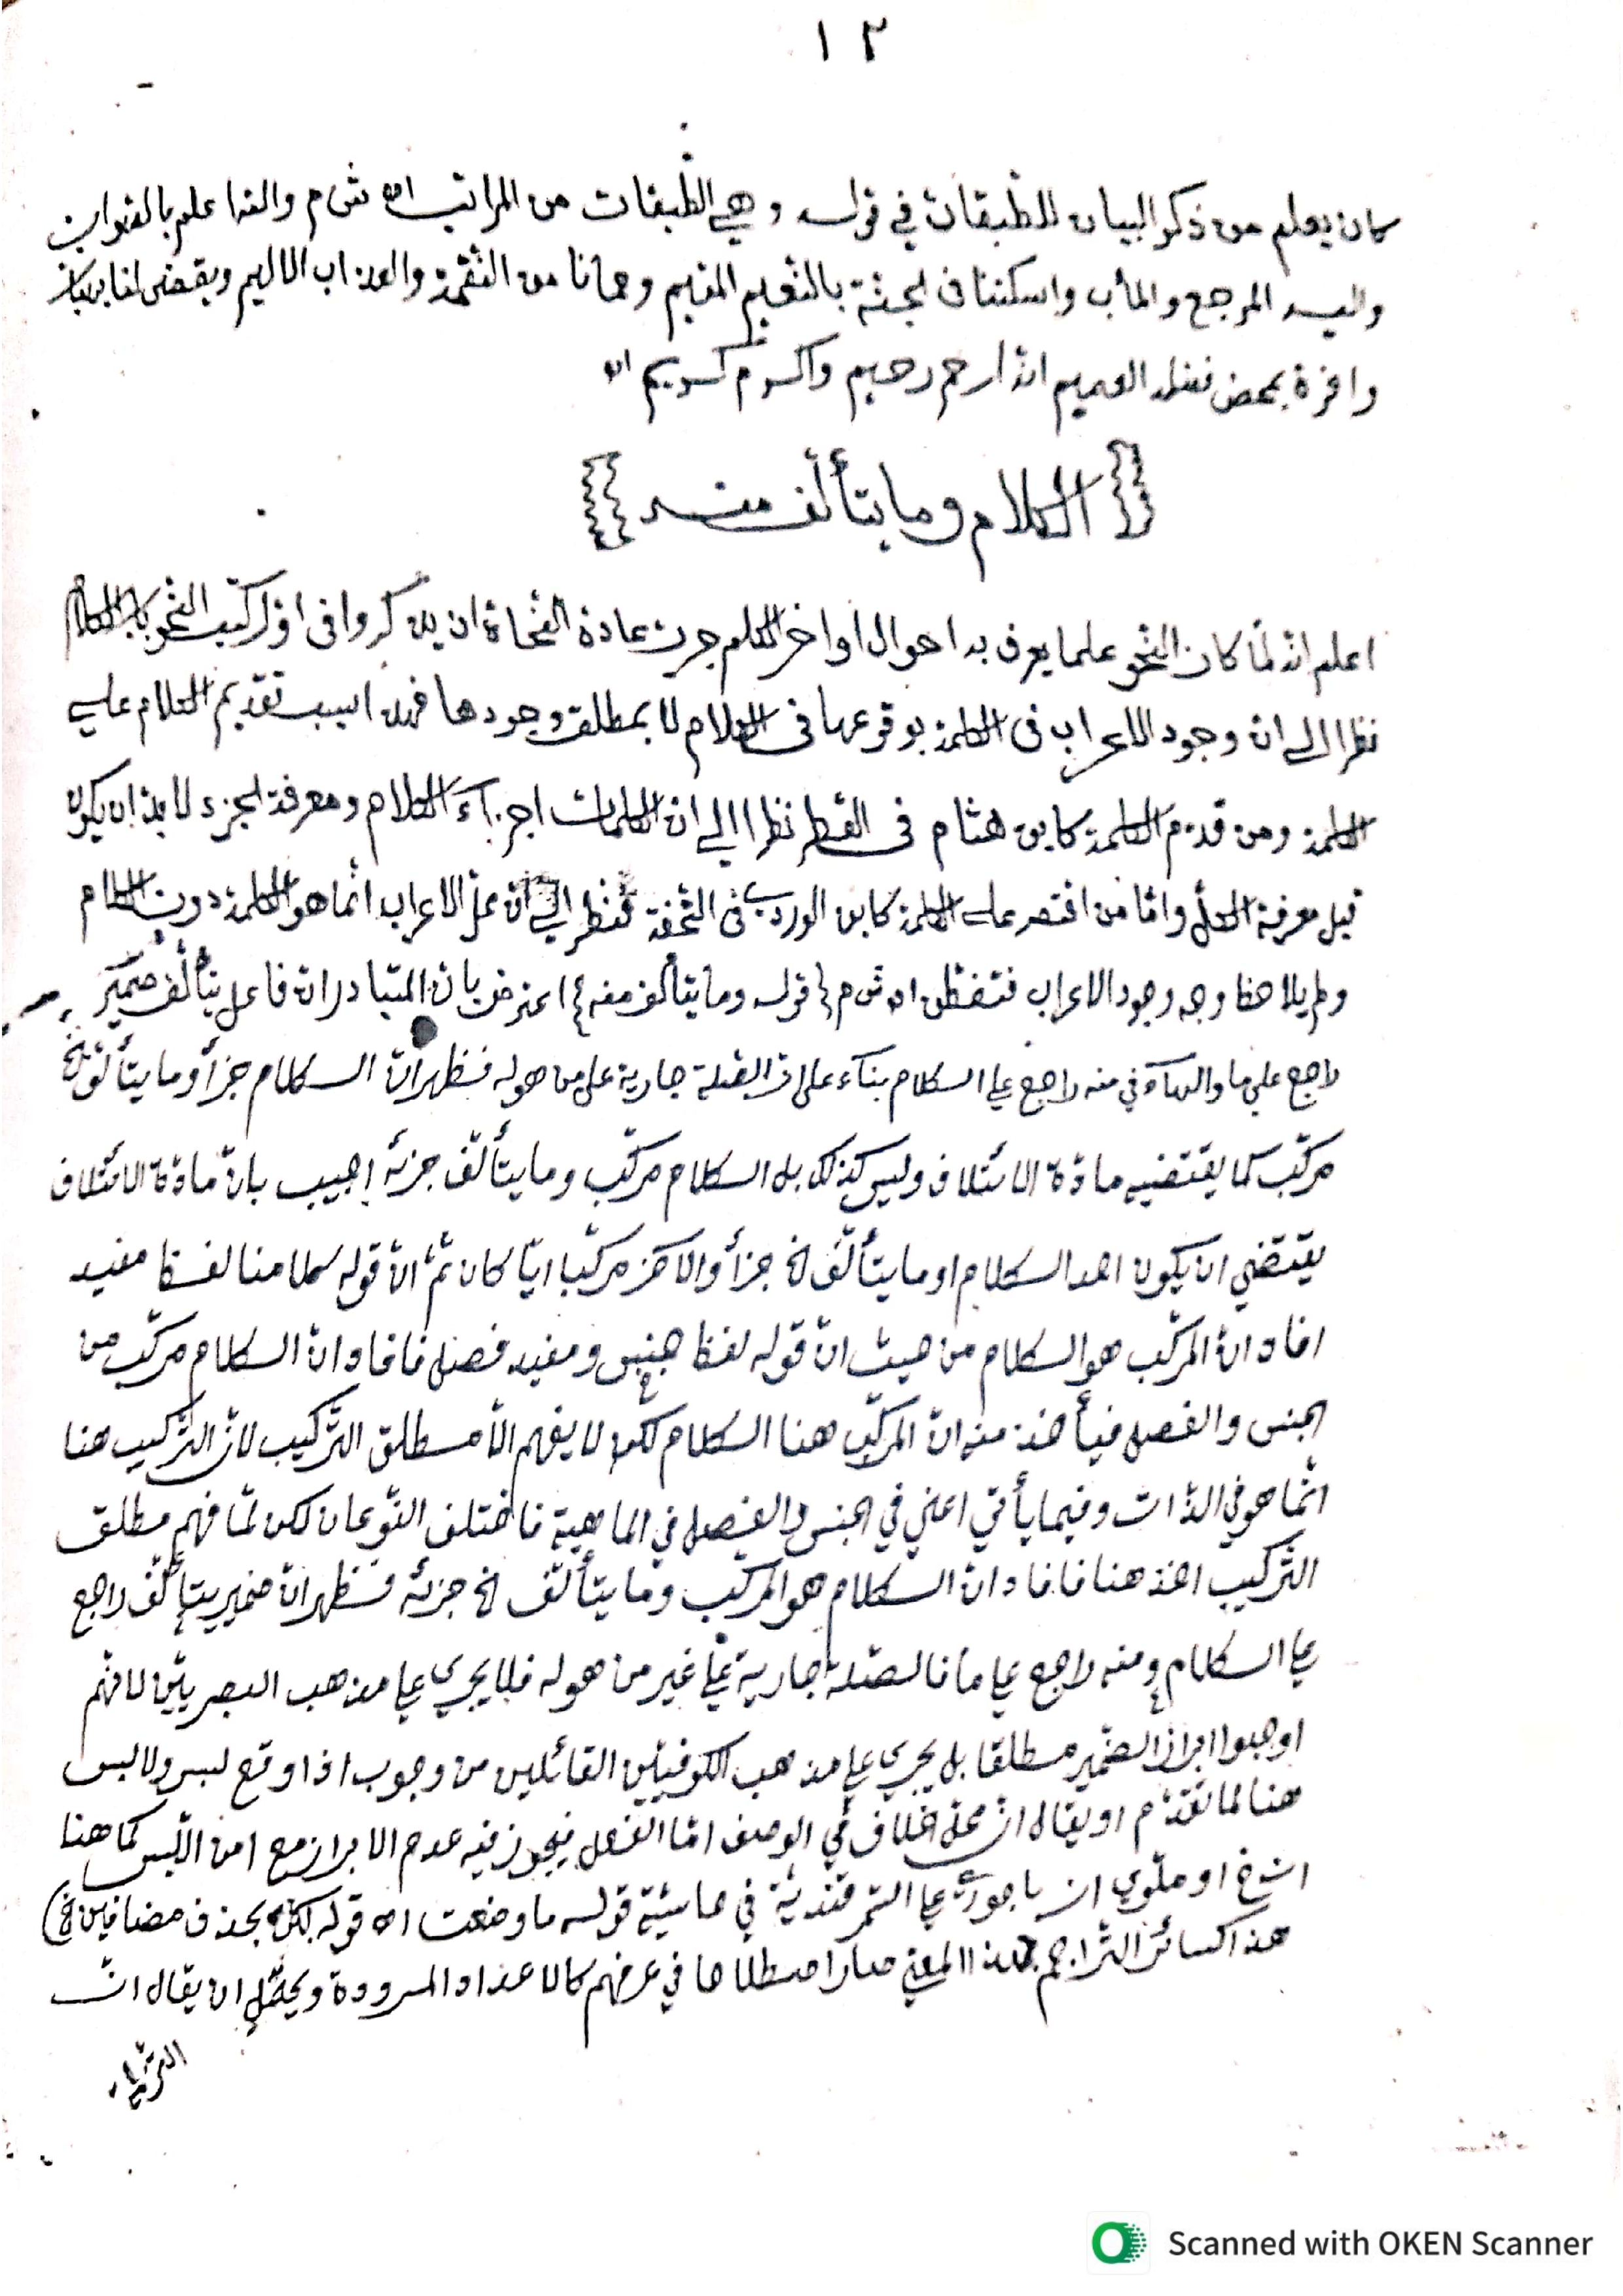 ١٢
كان يعلم من ذكر البيان للطبقات في قوله وهي الطبقات من المراتب اه ش م والله اعلم بالصواب
واليه المرجع والمأب واسكننا في الجنة بالنعيم المقيم وحمانا من النقمة والعذاب الاليم ويقضى لنا
وافرة بمحض فضله العميم انه ارحم رحيم واكرم كريم اه
الكلام وما يتألف منه
اعلم انه لمّا كان النحو علما يعرف به احوال اواخر الكلم جرت عادة النحاة ان يذكروا في اوّل كتب النحو باب الكلام
نظرا الى ان وجود الاعراب فى الكلمة بوقوعها فى الكلام لا بمطلق وجودها فهذا سبب تقديم الكلام على
الكلمة ومن قدّم الكلمة كابن هشام فى القطر نظرا الى ان الكلمات اجزآء الكلام ومعرفة الجزء لا بدّ ان يكون
قبل معرفة الكلّ وامّا من اقتصر على الكلمة كابن الوردي فى التحفة فنظر الى انّ محلّ الاعراب انّما هو الكلمة دون الكلام
ولم يلاحظ وجه وجود الاعراب فتفطّن اه ش م { قوله وما يتألف منه } اعترض بان المتبادر ان فاعل يتألّف ضمير
راجع على ما والهآء في منه راجع على الكلام بناء على انّ الصّلة جارية على من هو له فظهر انّ الكلام جزأ وما يتألّف الخ
مركّب كما يقتضيه مادّة الائتلاف وليس كذلك بل الكلام مركّب وما يتألّف جزئه اجيب بانّ مادّة الائتلاف
يقتضي ان يكون احد الكلام او ما يتألّف الخ جزأ والآخر مركّبا ايّا كان ثمّ انّ قوله كلامنا لفظ مفيد
افاد انّ المركّب هو الكلام من حيث انّ قوله لفظ جنس ومفيد فصل فافاد انّ الكلام مركّب من
الجنس والفصل فيأخذ منه انّ المركّب هنا الكلام لكن لا يفهم الّا مطلق التركيب لانّ التركيب هنا
انّما هو في الذّات وفيما يأتي اعني في الجنس والفصل في الماهية فاختلف النّوعان لكن لمّا فهم مطلق
التّركيب اخذ هنا فافاد انّ الكلام هو المركّب وما يتألّف الخ جزئه فظهر انّ ضمير يتألّف راجع
على الكلام ومنه راجع على ما فالصّلة جارية على غير من هو له فلا يجري على مذهب البصريّين لانهم
اوجبوا ابراز الضّمير مطلقا بل يجري على مذهب الكوفيّين القائلين من وجوب اذا وقع لبس ولا لبس
هنا لما تقدّم او يقال انّ محلّ الخلاف في الوصف امّا الفعل فيجوز فيه عدم الابراز مع امن اللّبس كما هنا
او ملّوي باجوري على السّمرقنديّة في حاشيّة قوله ما وضعت اه قوله لكن بحذف مضافين الخ)
هذا كسائر التّراجم المعنى صار اصطلاحا في عرفهم كالاعداد المسرودة ويحتمل ان يقال انّ